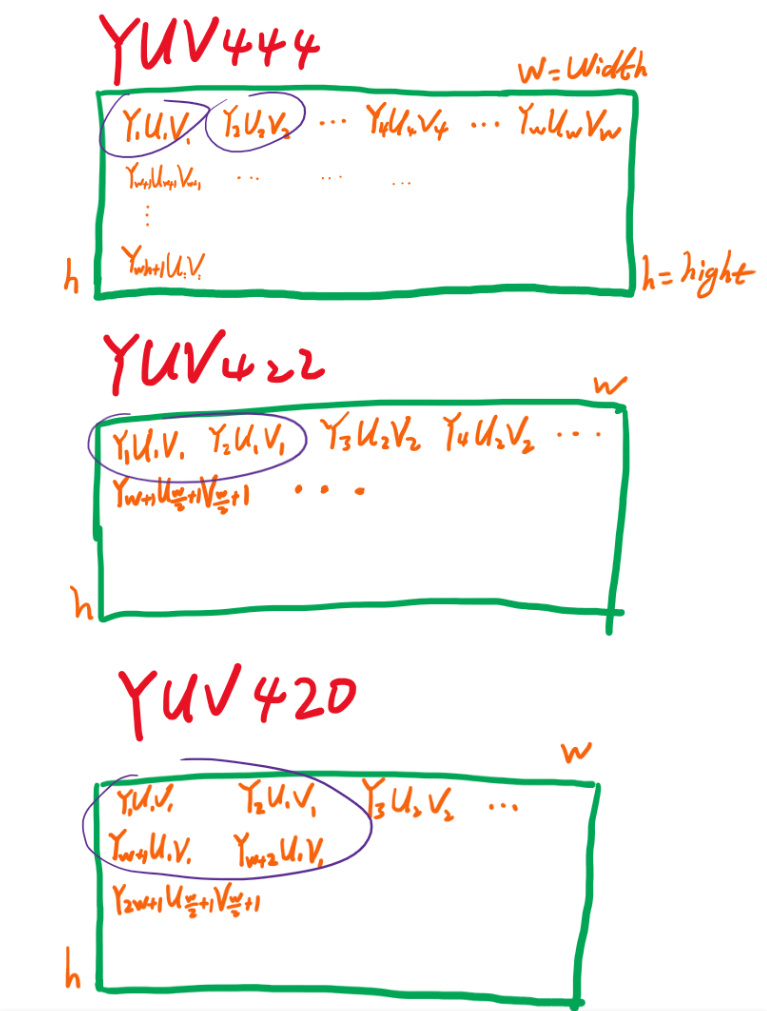 YUV444
W=Width
Y₁U₁V₁ Y₂U₂V₂ ... Y₄U₄V₄ ... YwUwVw
Yw+1Uw+1Vw+1 ... ... ...
⋮
h
h=hight
YUV422
W
Y₁U₁V₁ Y₂U₁V₁ Y₃U₂V₂ Y₄U₂V₂ ...
Yw+1Uw/2+1Vw/2+1 ...
h
YUV420
W
Y₁U₁V₁ Y₂U₁V₁ Y₃U₂V₂ ...
Yw+1U₁V₁ Yw+2U₁V₁
Y2w+1Uw/2+1Vw/2+1
h